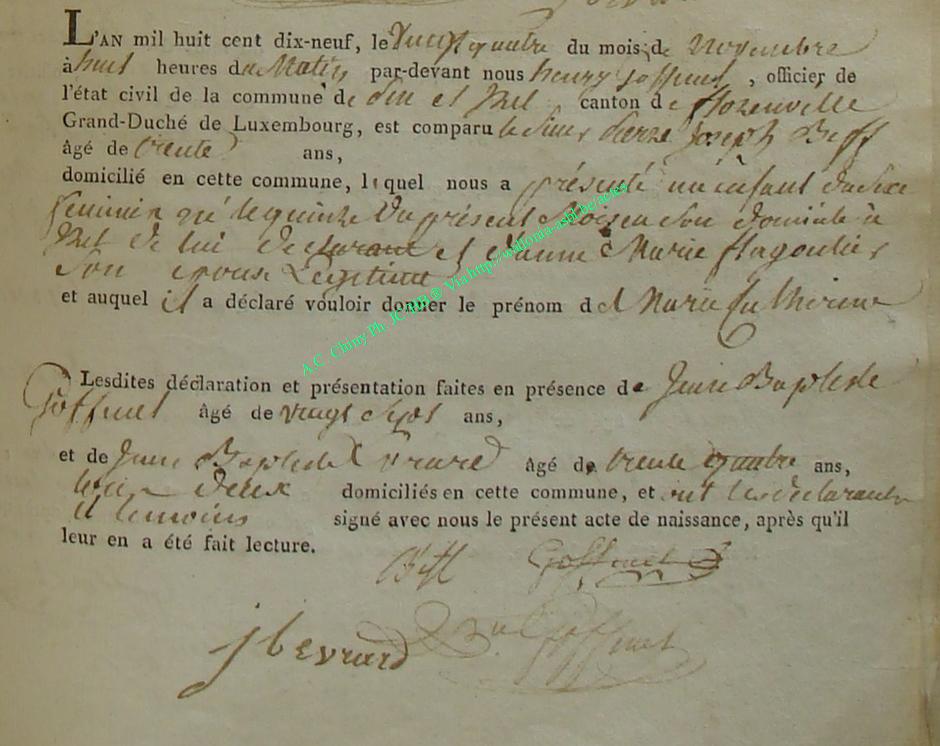 L'AN mil huit cent dix-neuf, le vingt quatre du mois de novembre
à huit heures du Matin par-devant nous henry Goffinet, officier de
l'état civil de la commune de et canton de florenville
Grand-Duché de Luxembourg, est comparu le Sieur Pierre Joseph Biff
âgé de trente ans,
domicilié en cette commune, lequel nous a présenté un enfant du Sexe
feminin né le quinze du présent Mois en Son domicile à
de lui declarant et d'anne Marie flagoutier
Son epouse Legitime
et auquel il a déclaré vouloir donner le prénom de Marie
Lesdites déclaration et présentation faites en présence de Jean Baptiste
Goffinet âgé de vingt Sept ans,
et de Jean Baptiste Evrard âgé de trente quatre ans,
deux domiciliés en cette commune, et ont les declarants
et temoins signé avec nous le présent acte de naissance, après qu'il
leur en a été fait lecture.
Biff Goffinet
j b evrard Goffinet
A.C. Chiny Ph. JC HB ® Via http://wallonia-asbl.be/actes